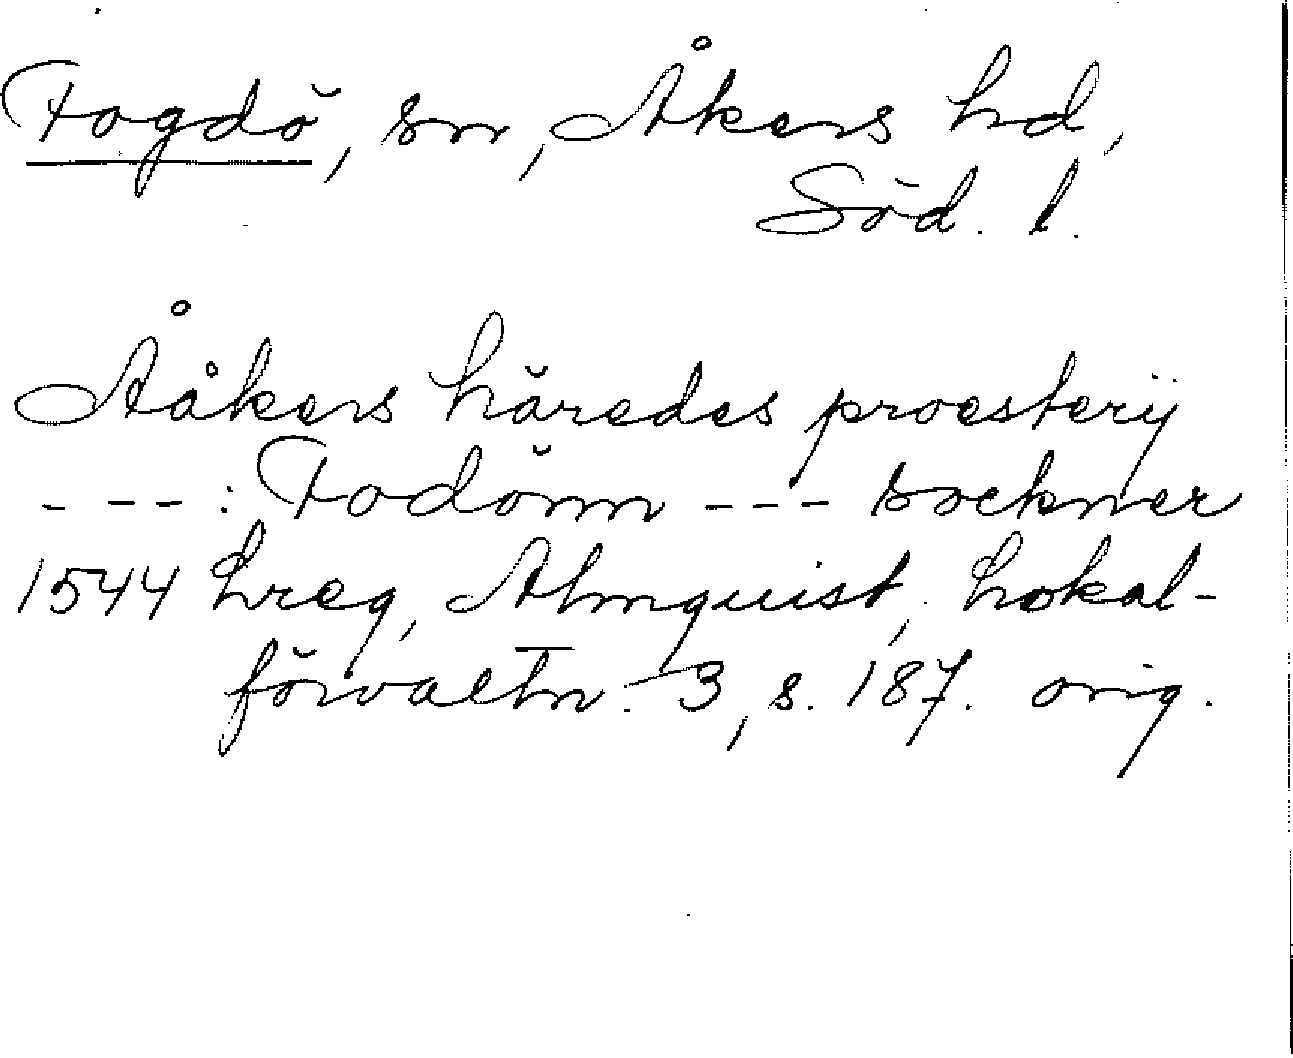 Fogdö, sn, Åkers hd,
Söd. l.
Ååkers häredes proesterij
---: Fodönn --- sockner
1544 Lreg, Almquist, Lokal-
förvaltn. 3, s. 187. orig.